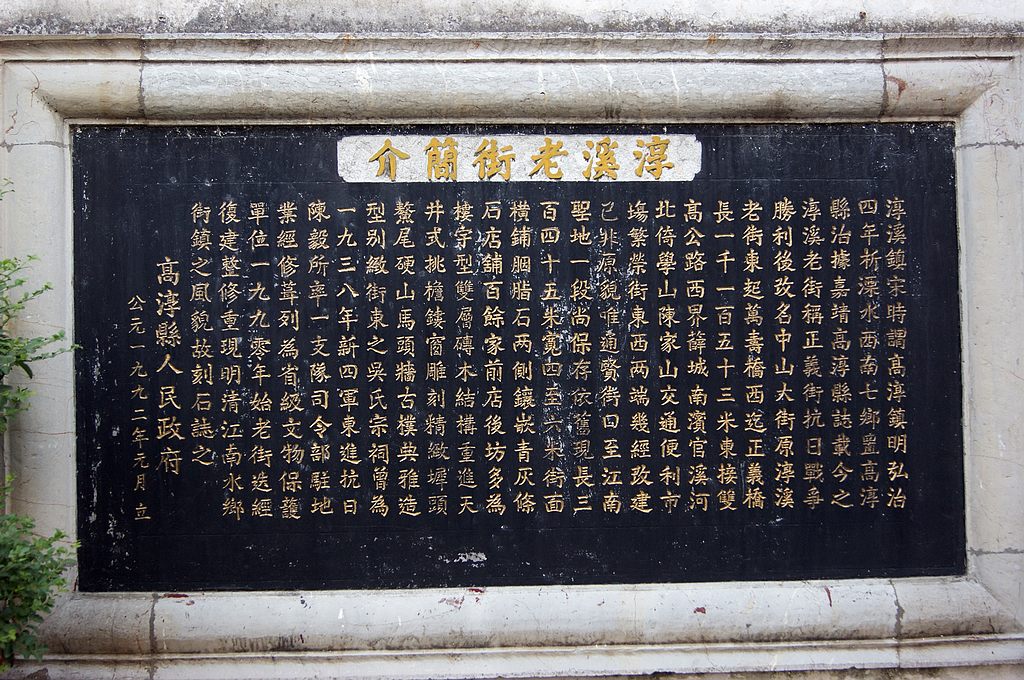 淳溪老街簡介
淳溪鎮宋時謂高淳鎮明弘治
四年析溧水西南七鄉置高淳
縣治據嘉靖高淳縣誌載今之
淳溪老街稱正義街抗日戰爭
勝利後改名中山大街原淳溪
老街東起萬壽橋西迄正義橋
長一千一百五十三米東接雙
高公路西界薛城南濱官溪河
北倚學山陳家山交通便利市
塲繁榮街東西两端幾經改建
己非原貌唯通賢街口至江南
聖地一段尚保存依舊現長三
百四十五米寬四至六米街面
橫鋪胭脂石两側鑲嵌青灰條
石店舖百餘家前店後坊多為
樓宇型雙層磚木結構重進天
井式挑檐鏤窗雕刻精緻墀頭
鰲尾硬山馬頭牆古樸典雅造
型别緻街東之吳氏宗祠曾為
一九三八年新四軍東進抗日
陳毅所率一支隊司令部駐地
業經修葺列為省級文物保護
單位一九九零年始老街迭經
復建整修重現明清江南水鄉
街鎮之風貌故刻石誌之
高淳縣人民政府
公元一九九二年元月立